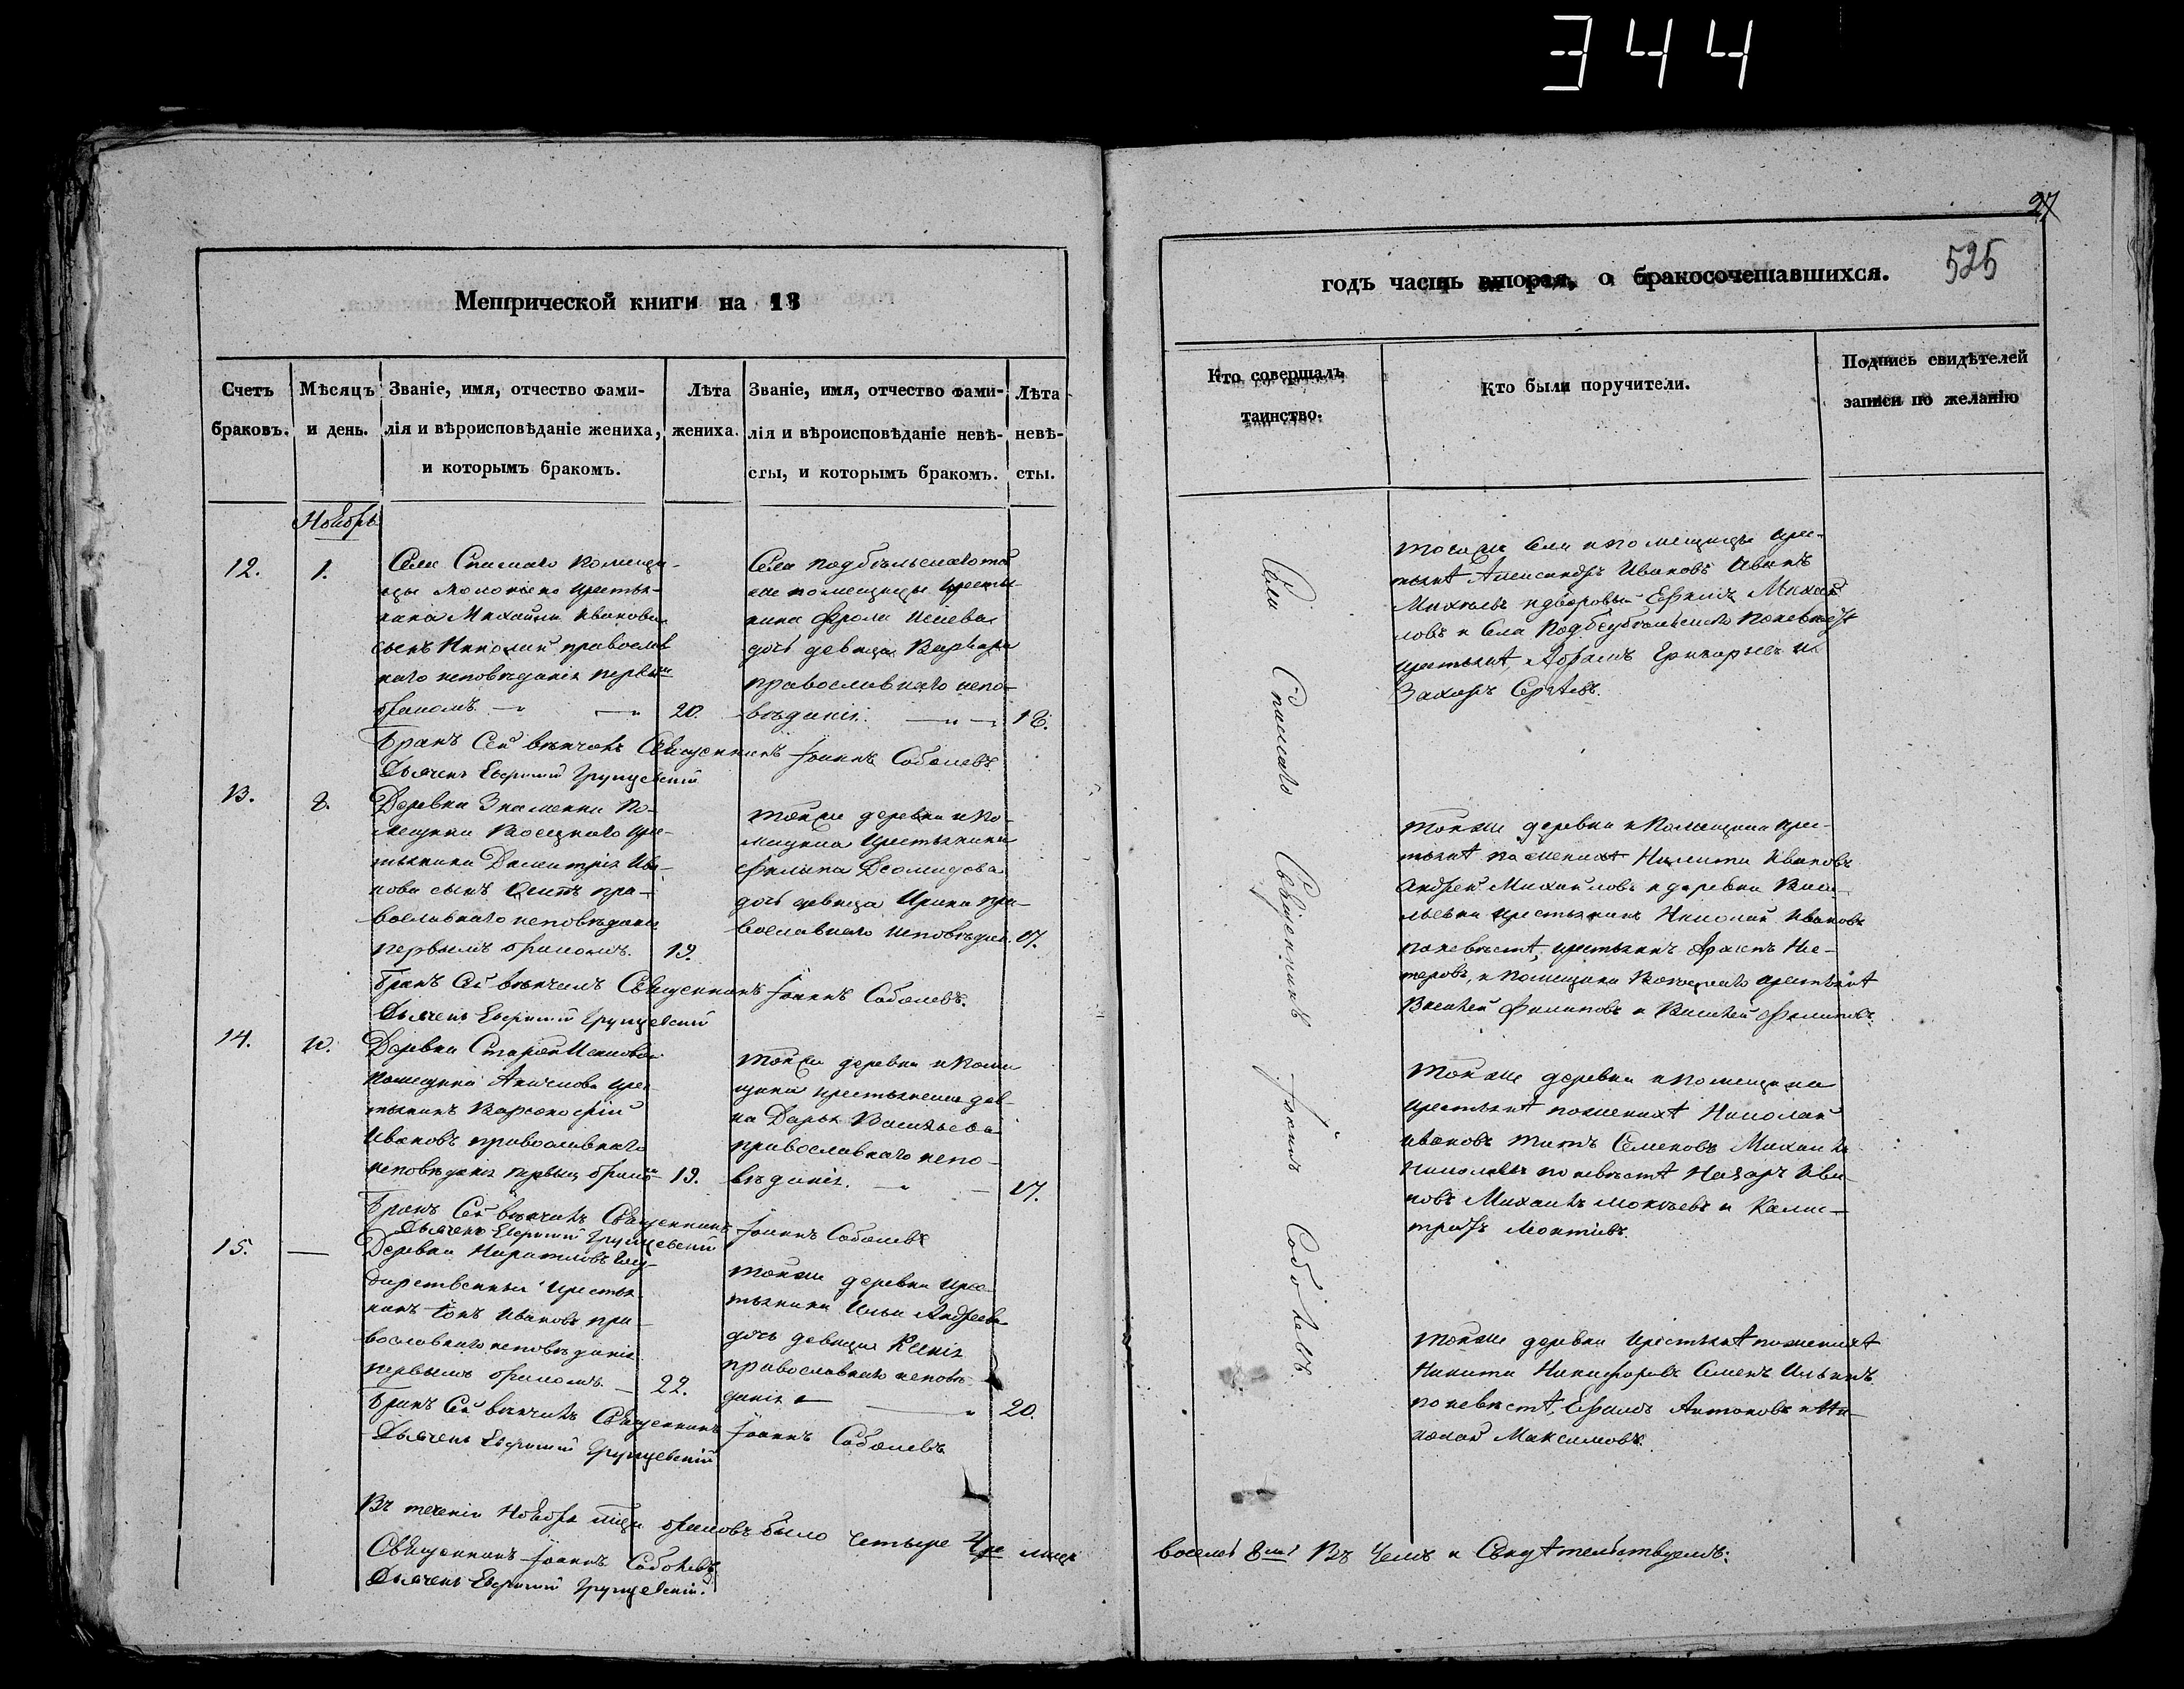 344
27
525
Метрической книги на 18
Счетъ
браковъ.
Мѣсяцъ
и день.
Званіе, имя, отчество фами-
лія и вѣроисповѣданіе жениха,
и которымъ бракомъ.
Лѣта
жениха.
Званіе, имя, отчество фами-
лія и вѣроисповѣданіе невѣ-
сты, и которымъ бракомъ.
Лѣта
невѣ-
сты.
Ноябрь
12.
1.
Села Спаскаго помещи-
цы крестья-
нина Михаила Иванова
сынъ Николай православ
наго исповѣданія первы
бракомъ
20.
Села Подбѣльскаго той
же помещицы кресть
нина Фрола
дочь девица Варвара
православнаго испо-
вѣданія.
18.
Бракъ Сей вѣнчалъ Священникъ Іоаннъ Соболевъ
Дьячекъ Евфимій
13.
8.
Деревни Знаменки по-
мещика крес-
тьянина Димитрія Ива-
нова сынъ пра-
вославнаго исповѣдані
первымъ бракомъ.
19.
тойже деревни и по-
мещика крестьянина
Филипа Деомидова
дочь девица Ирина пра-
вославнаго исповѣдан.
17.
Бракъ Сей вѣнчалъ Священникъ Іоаннъ Соболевъ.
Дьячекъ Евфимій
14.
10.
Деревни Старой
помещика крес-
тьянинъ Варсонофій
Ивановъ православнаго
исповѣданія первым браком
19.
тойже деревни и поме
щика крестьянска дев-
ка Дарья Васильева
православнаго испо-
вѣданія.
17.
Бракъ Сей вѣнчалъ Священникъ Іоаннъ Соболевъ
Дьячекъ Евфимій
15.
Деревни Госу-
дарственный крестья-
нинъ Іонъ Ивановъ пра-
вославнаго исповѣданія
первымъ бракомъ
22.
тойже деревни крес-
тьянина Ильи Андреева
дочь девица Ксенія
православнаго исповѣ-
данія
20.
Бракъ Сей вѣнчалъ Священникъ Іоаннъ Соболевъ
Дьячекъ Евфимій
Въ теченіи Ноября мцѣ браковъ было Четыре 4ре лицъ
Священникъ Іоаннъ Соболевъ
Дьячекъ Евфимій
годъ часть вторая, о бракосочетавшихся.
Кто совершалъ
таинство.
Кто были поручители.
Подпись свидѣтелей
записи по желанію
Села Спаскаго Священникъ Іоаннъ Соболевъ.
тогоже села и помещицы крес-
тьянѣ Александръ Ивановъ Иванъ
и дворовый Ефимъ Михай
ловъ и Села по невѣстѣ
крестьянѣ, Абрамъ Григорьевъ и
Захаръ Сергѣевъ.
тойже деревни и помещика крес-
тьянѣ по женихѣ Никита Ивановъ
Андрей Михайловъ и деревни Васи-
льевки крестьянинъ Николай Ивановъ
по невѣстѣ, крестьянинъ Нес-
теровъ, и помещика крестьянѣ
Василей Филиповъ и Василей Филиповъ.
тойже деревни и помещика
крестьянѣ по женихѣ Николай
Ивановъ Титъ Семеновъ Михаилъ
Николаевъ по невѣстѣ Назаръ Ива-
новъ Михаилъ и Калис-
тратъ
тойже деревни крестьянѣ по женихѣ
Никита Никифоровъ Семенъ Ильинъ
по невѣстѣ, Ефимъ Антоновъ и Ни-
колай Максимовъ.
восемь 8мь Въ чемъ и Свидѣтельствуемъ: